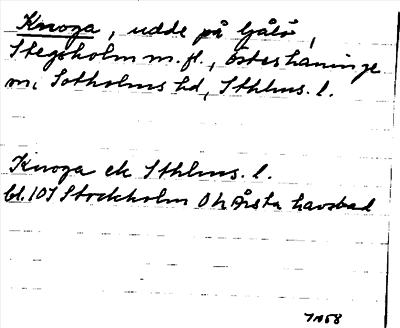 Knoga, udde på Gålö,
Stegsholm m.fl., Österhaninge
m, Sotholms hd, Sthlms. l.
Knoga ek Sthlms. l.
bl. 10I Stockholm 0h Årsta havsbad